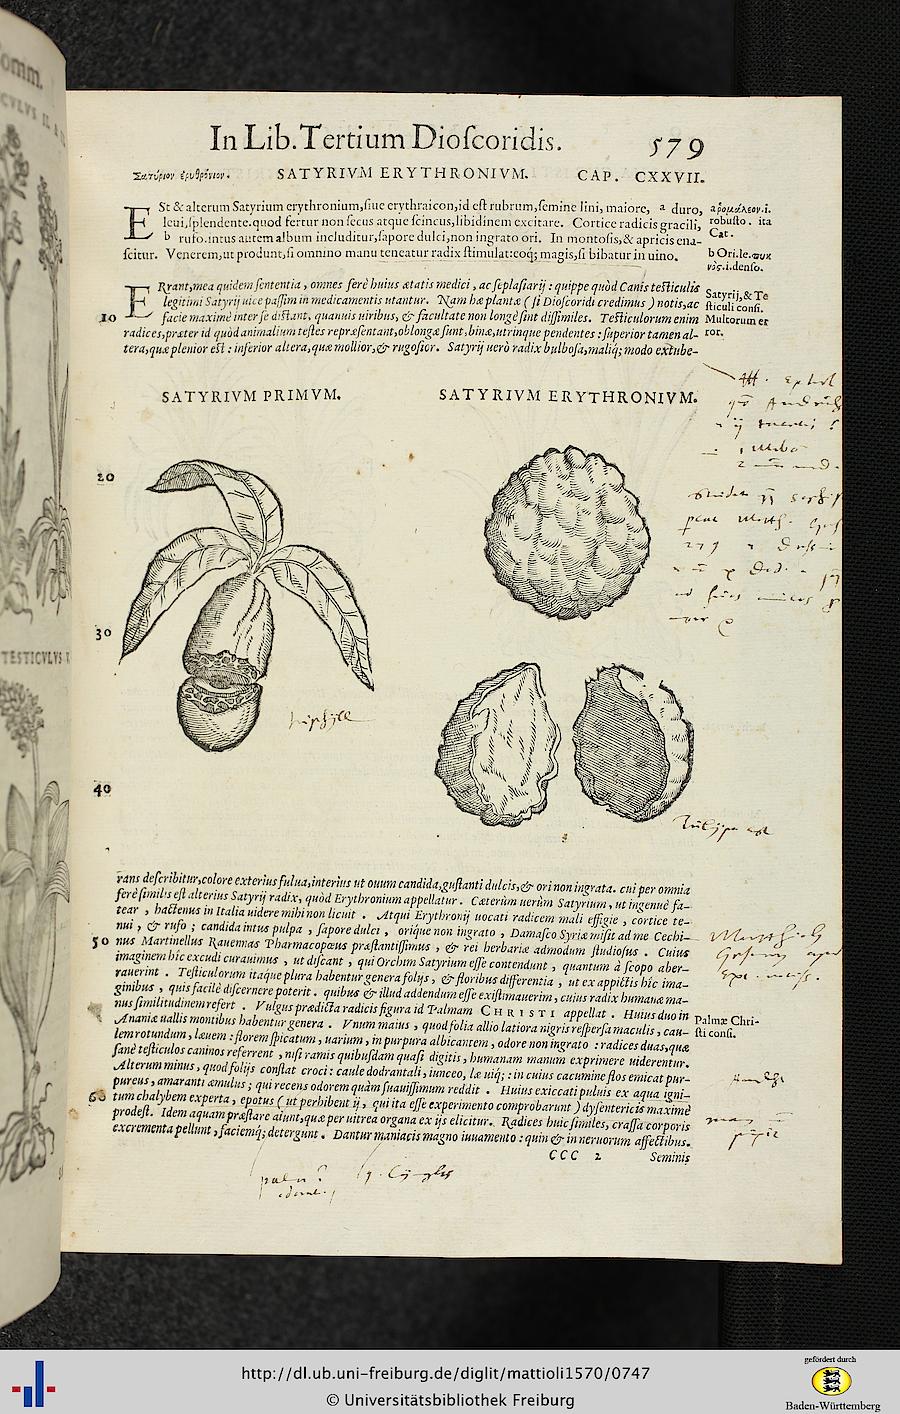 In Lib.Tertium Dioſcoridis. 579
Σατύριον ἐρυθρόνιον. SATYRIVM ERYTHRONIVM. CAP. CXXVII.
ESt & alterum Satyrium erythronium,ſiue erythraicon,id eſt rubrum,ſemine lini, maiore, a duro,
leui,ſplendente.quod fertur non ſecus atque ſcincus,libidinem excitare. Cortice radicis gracili,
b rufo.intus autem album includitur,ſapore dulci,non ingrato ori. In montoſis,& apricis ena-
ſcitur. Venerem,ut produnt,ſi omnino manu teneatur radix ſtimulat:eoq́; magis,ſi bibatur in uino.
robuſto. ita
Cat.
b Ori.le.πυκ
νὸς.i.denſo.
ERrant,mea quidem ſententia, omnes ferè huius ætatis medici, ac ſeplaſiarij: quippe quòd Canis teſticulis
legitimi Satyrij uice paſſim in medicamentis utantur. Nam hæ plantæ (ſi Dioſcoridi credimus) notis,ac
10 facie maximè inter ſe diſtant, quamuis uiribus, & facultate non longè ſint diſſimiles. Teſticulorum enim
radices,præter id quòd animalium teſtes repræſentant,oblongæ ſunt,binæ,utrinque pendentes: ſuperior tamen al-
tera,quæ plenior eſt: inferior altera,quæ mollior,& rugoſior. Satyrij uerò radix bulboſa,maliq́; modo extube-
Satyrij,& Te
ſticuli confi.
Multorum er
ror.
SATYRIVM PRIMVM. SATYRIVM ERYTHRONIVM.
20
30
40
rans deſcribitur,colore exterius fulua,interius ut ouum candida,guſtanti dulcis,& ori non ingrata. cui per omnia
ferè ſimilis eſt alterius Satyrij radix, quòd Erythronium appellatur. Cæterùm uerùm Satyrium, ut ingenuè fa-
tear, hactenus in Italia uidere mihi non licuit. Atqui Erythronij uocati radicem mali effigie, cortice te-
nui, & rufo; candida intus pulpa, ſapore dulci, orique non ingrato, Damaſco Syriæ miſit ad me Cechi-
50 nus Martinellus Rauennas Pharmacopœus præſtantiſſimus, & rei herbariæ admodum ſtudioſus. Cuius
imaginem hic excudi curauimus, ut diſcant, qui Orchim Satyrium eſſe contendunt, quantum à ſcopo aber-
rauerint. Teſticulorum itaque plura habentur genera folijs, & floribus differentia, ut ex appictis hic ima-
ginibus, quis facilè diſcernere poterit. quibus & illud addendum eſſe exiſtimauerim, cuius radix humanæ ma-
nus ſimilitudinem refert. Vulgus prædicta radicis figura id Palmam CHRISTI appellat. Huius duo in
Ananiæ uallis montibus habentur genera. Vnum maius, quod folia allio latiora nigris reſperſa maculis, cau-
lem rotundum, læuem: florem ſpicatum, uarium, in purpura albicantem, odore non ingrato: radices duas,quæ
ſanè teſticulos caninos referrent, niſi ramis quibuſdam quaſi digitis, humanam manum exprimere uiderentur.
Alterum minus, quod folijs conſtat croci: caule dodrantali, iunceo, læuiq́;: in cuius cacumine flos emicat pur-
pureus, amaranti æmulus; qui recens odorem quàm ſuauiſſimum reddit. Huius exiccati puluis ex aqua igni-
60 tum chalybem experta, epotus (ut perhibent ij, qui ita eſſe experimento comprobarunt) dyſentericis maximè
prodeſt. Idem aquam præſtare aiunt,quæ per uitrea organa ex ijs elicitur. Radices huic ſimiles, craſſa corporis
excrementa pellunt, faciemq́; detergunt. Dantur maniacis magno iuuamento: quin & in neruorum affectibus.
Palmæ Chri-
ſti conſi.
CCC 2 Seminis
omm.
TESTICVLVS
http://dl.ub.uni-freiburg.de/diglit/mattioli1570/0747
© Universitätsbibliothek Freiburg
gefördert durch
Baden-Württemberg